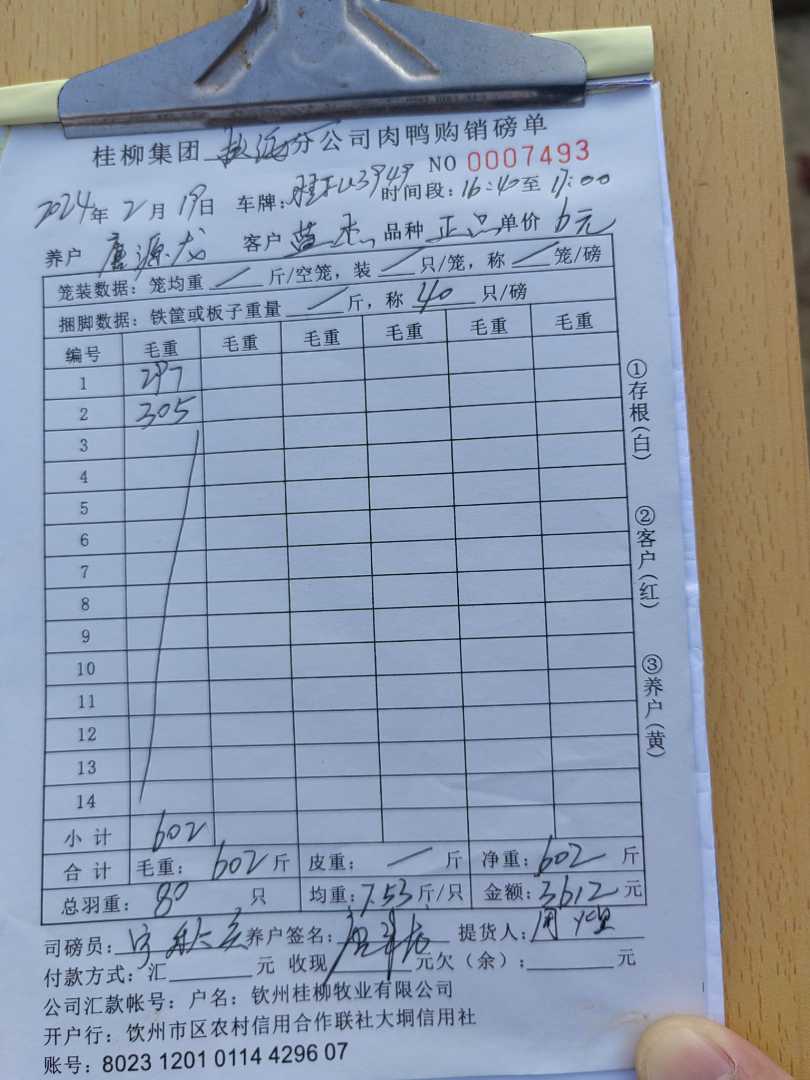 桂柳集团 钦沅分公司肉鸭购销磅单
NO 0007493
2024年2月19日 车牌: 时间段:16:40至17:00
养户 唐源龙 客户 蓝杰 品种 正品 单价 6元
笼装数据:笼均重 / 斤/空笼,装 / 只/笼,称 / 笼/磅
捆脚数据:铁筐或板子重量 / 斤,称 40 只/磅
编号 毛重 毛重 毛重 毛重 毛重 毛重
1 297
2 305
3
4
5
6
7
8
9
10
11
12
13
14
小计 602
合计 毛重: 602 斤 皮重: / 斤 净重: 602 斤
总羽重: 80 只 均重: 7.53 斤/只 金额: 3612 元
司磅员: 养户签名: 提货人:
付款方式:汇 元 收现 元欠(余): 元
公司汇款帐号:户名:钦州桂柳牧业有限公司
开户行:饮州市区农村信用合作联社大垌信用社
账号:8023 1201 0114 4296 07
①存根(白)
②客户(红)
③养户(黄)